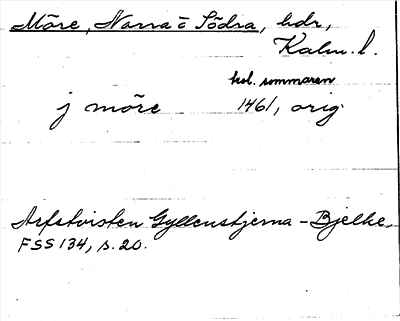 Möre, Norra o Södra, hdr,
Kalm. l.
hol. sommaren
j möre 1461, orig.
Arfstvisten Gyllenstjerna - Bjelke.
FSS 134, s. 20.